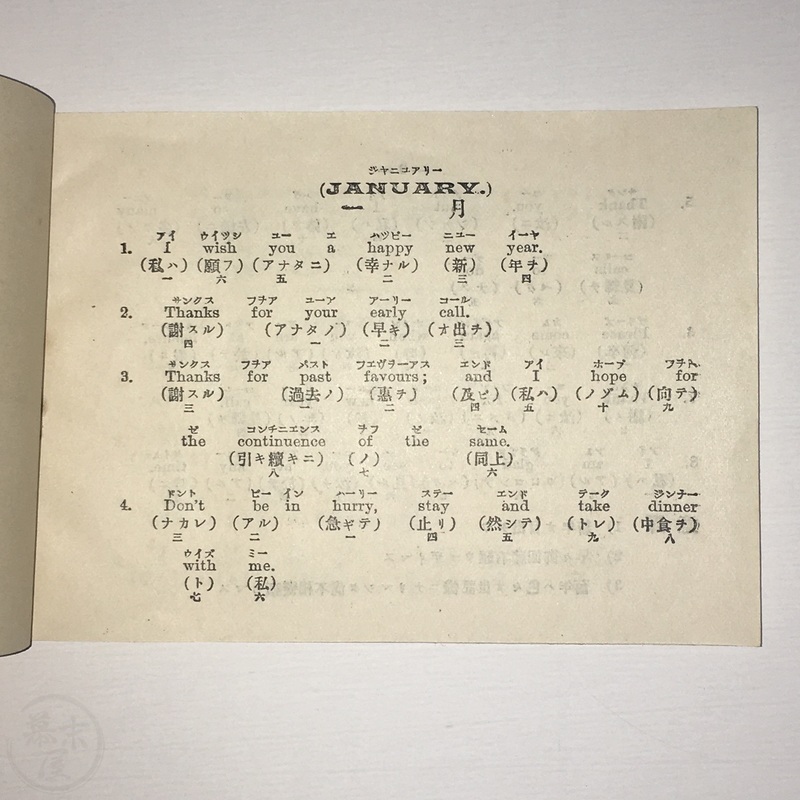 ジヤニユアリー
(JANUARY.)
一 月
アイ ウイツシ ユー エ ハツピー ニユー イーヤ
1. I wish you a happy new year.
(私ハ) (願フ) (アナタニ) (幸ナル) (新) (年ヲ)
一 六 五 二 三 四
サンクス フヲア ユーア アーリー コール
2. Thanks for your early call.
(謝スル) (アナタノ) (早キ) (オ出ヲ)
四 一 二 三
サンクス フヲア パスト フエヴヲーアス エンド アイ ホープ フヲア
3. Thanks for past favours; and I hope for
(謝スル) (過去ノ) (惠ヲ) (及ビ) (私ハ) (ノゾム) (向テ)
三 一 二 四 五 十 九
ゼ コンチニエンス ヲフ ゼ セーム
the continuence of the same.
(引キ續キニ) (ノ) (同上)
八 七 六
ドント ビー イン ハーリー ステー エンド テーク ジンナー
4. Don't be in hurry, stay and take dinner
(ナカレ) (アル) (急ギテ) (止リ) (然シテ) (トレ) (中食ヲ)
三 二 一 四 五 九 八
ウイズ ミー
with me.
(ト) (私)
七 六